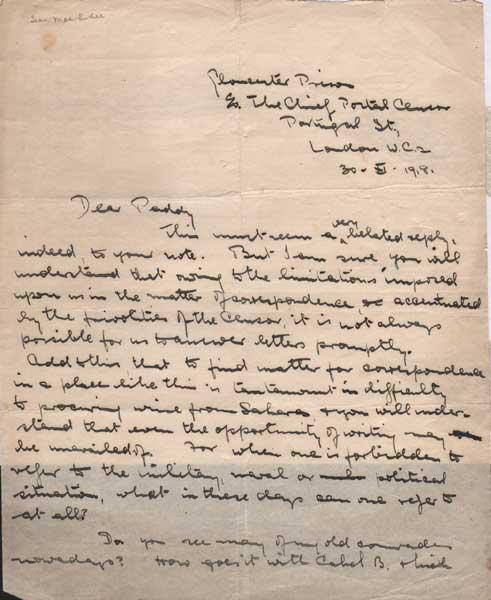 Gloucester Prison
c/o The Chief Postal Censor
Portugal St.,
London W.C.2
30 - XI - 1918.
Dear Paddy
This must seem a very belated reply,
indeed, to your note. But I am sure you will
understand that owing to the limitations imposed
upon us in the matter of correspondence, accentuated
by the frivolities of the Censor, it is not always
possible for us to answer letters promptly.
Add to this, that to find matter for correspondence
in a place like this is tantamount in difficulty
to procuring wine from Sahara & you will under-
stand that even the opportunity of writing may
be unavailed of. For when one is forbidden to
refer to the military, naval or political
situation, what in these days can one refer to
at all?
Do you see many of my old comrades
nowadays? How goes it with Cahal B. &